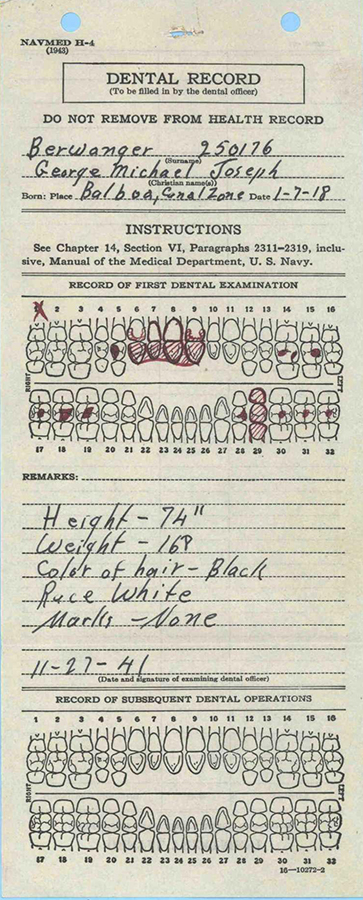 NAVMED H-4
(1943)
DENTAL RECORD
(To be filled in by the dental officer)
DO NOT REMOVE FROM HEALTH RECORD
Berwanger 250176
(Surname)
George Michael Joseph
(Christian name(s))
Born: Place Balboa, Canal Zone Date 1-7-18
INSTRUCTIONS
See Chapter 14, Section VI, Paragraphs 2311–2319, inclu-
sive, Manual of the Medical Department, U. S. Navy.
RECORD OF FIRST DENTAL EXAMINATION
1 2 3 4 5 6 7 8 9 10 11 12 13 14 15 16
RIGHT LEFT
17 18 19 20 21 22 23 24 25 26 27 28 29 30 31 32
REMARKS:
Height - 74"
Weight - 168
Color of hair - Black
Race White
Marks - None
11-27-41
(Date and signature of examining dental officer)
RECORD OF SUBSEQUENT DENTAL OPERATIONS
1 2 3 4 5 6 7 8 9 10 11 12 13 14 15 16
RIGHT LEFT
17 18 19 20 21 22 23 24 25 26 27 28 29 30 31 32
16—10272-2